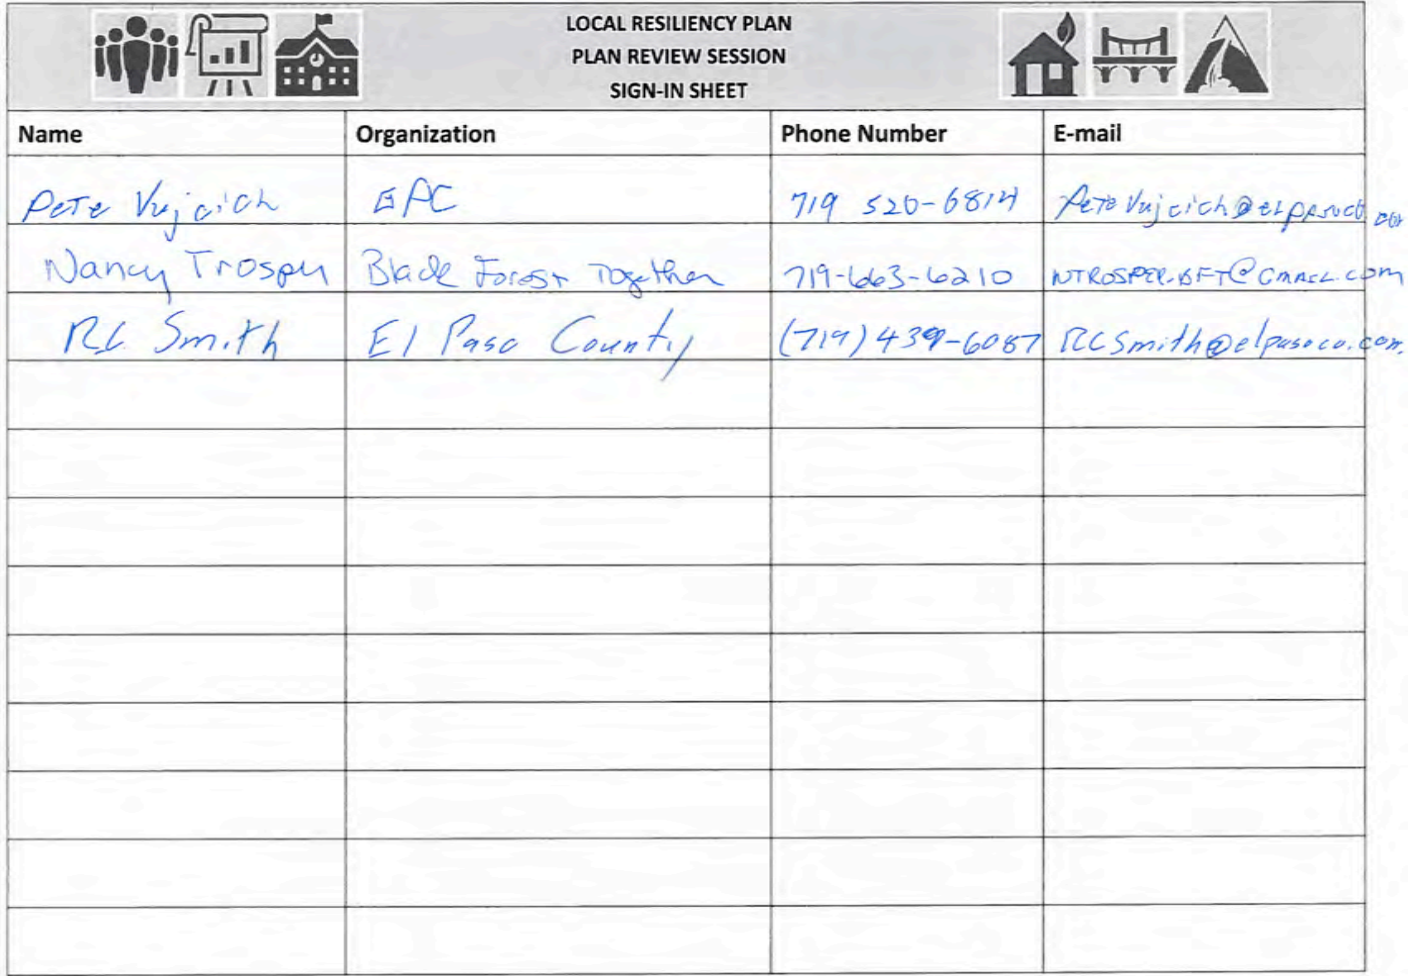 LOCAL RESILIENCY PLAN
PLAN REVIEW SESSION
SIGN-IN SHEET
Name Organization Phone Number E-mail
Pete Vujcich EPC 719 520-6814
Nancy Trosper Black Forest Together 719-663-6210 NTROSPER.BFT@GMAIL.COM
RC Smith El Paso County (719) 439-6087 RCSmith@elpasoco.com